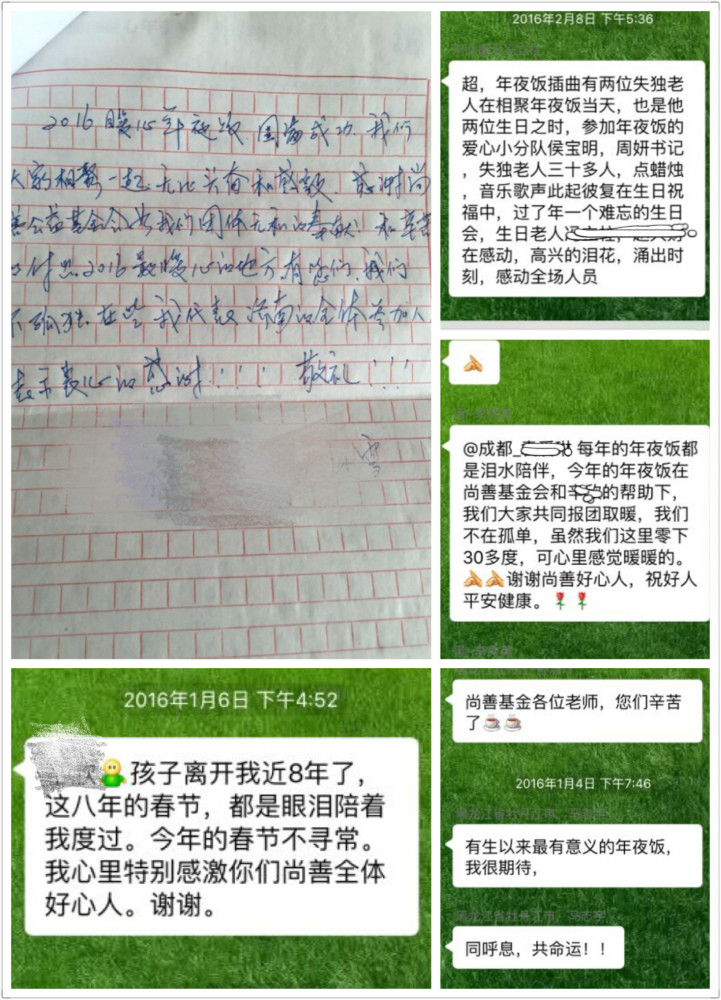 2016暖心年夜饭,圆满成功,我们
大家相聚一起,无比兴奋和感动,感谢尚
善公益基金会为我们团体无私的奉献!
2016最暖心的地方有您们,我们
不孤独,在此,我代表济南的全体参加人
表示衷心的感谢!!! 敬礼!!!
2016年2月8日 下午5:36
超,年夜饭插曲有两位失独老
人在相聚年夜饭当天,也是他
两位生日之时,参加年夜饭的
爱心小分队侯宝明,周妍书记
,失独老人三十多人,点蜡烛
,音乐歌声此起彼复在生日祝
福中,过了年一个难忘的生日
会,生日老人
在感动,高兴的泪花,涌出时
刻,感动全场人员
@成都_ 每年的年夜饭都
是泪水陪伴,今年的年夜饭在
尚善基金会和辛 的帮助下,
我们大家共同报团取暖,我们
不在孤单,虽然我们这里零下
30多度,可心里感觉暖暖的。
谢谢尚善好心人,祝好人
平安健康。🌹🌹
2016年1月6日 下午4:52
孩子离开我近8年了,
这八年的春节,都是眼泪陪着
我度过。今年的春节不寻常。
我心里特别感激你们尚善全体
好心人。谢谢。
尚善基金各位老师,您们辛苦
了☕☕
2016年1月4日 下午7:46
有生以来最有意义的年夜饭,
我很期待,
同呼息,共命运!!